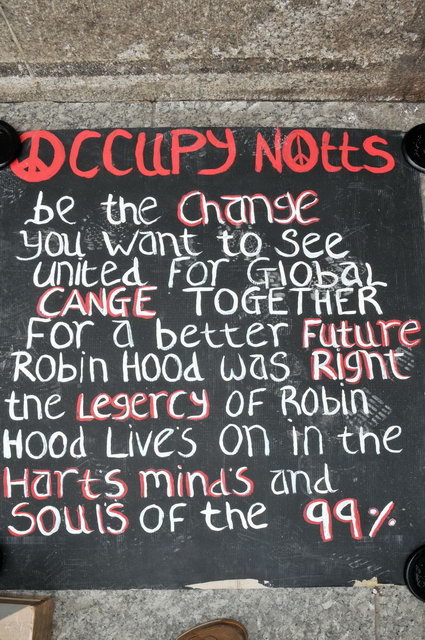 OCCUPY NOttS
be the Change
you want to see
united For Global
CANGE TOGETHER
For a better Future
Robin Hood was Right
the Legercy OF Robin
Hood Lives on in the
Harts minds and
Souls of the 99%